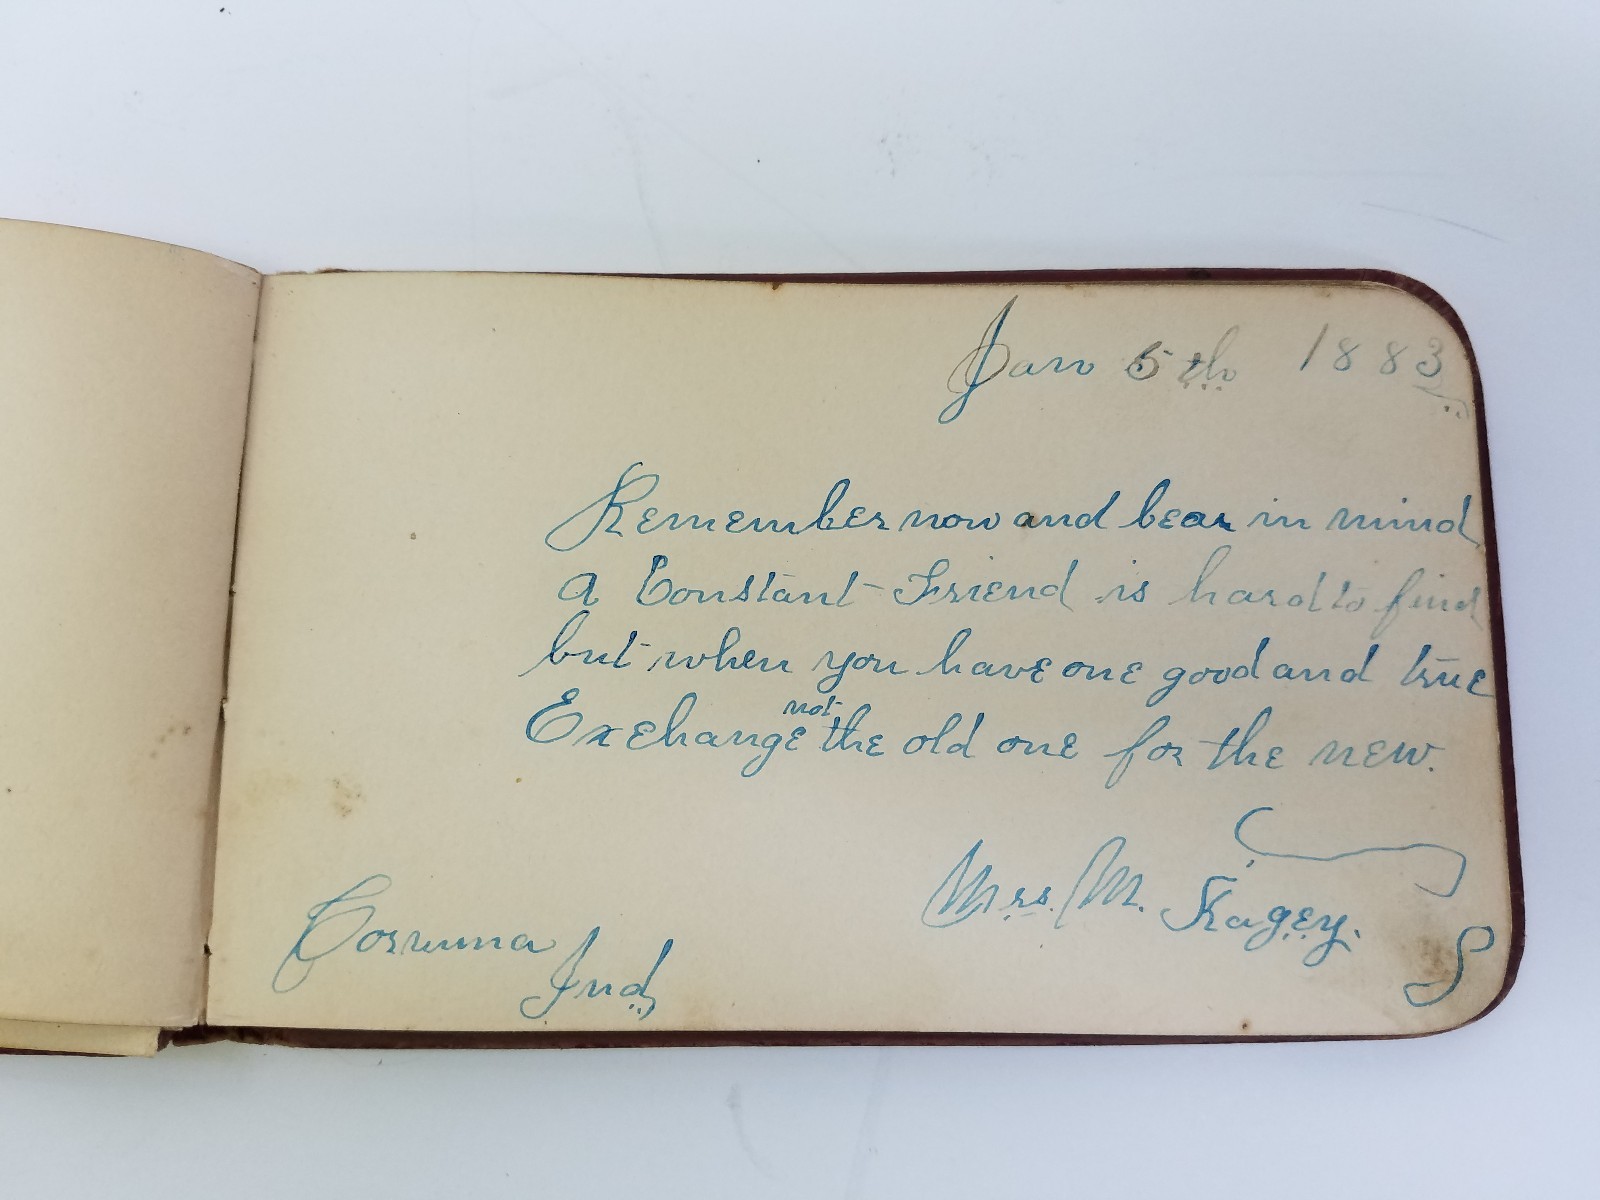 Jan 5th 1883
Remember now and bear in mind
a Constant Friend is hard to find
but when you have one good and true
Exchange not the old one for the new.
Mrs. M. Kagey.
Corunna
Ind,